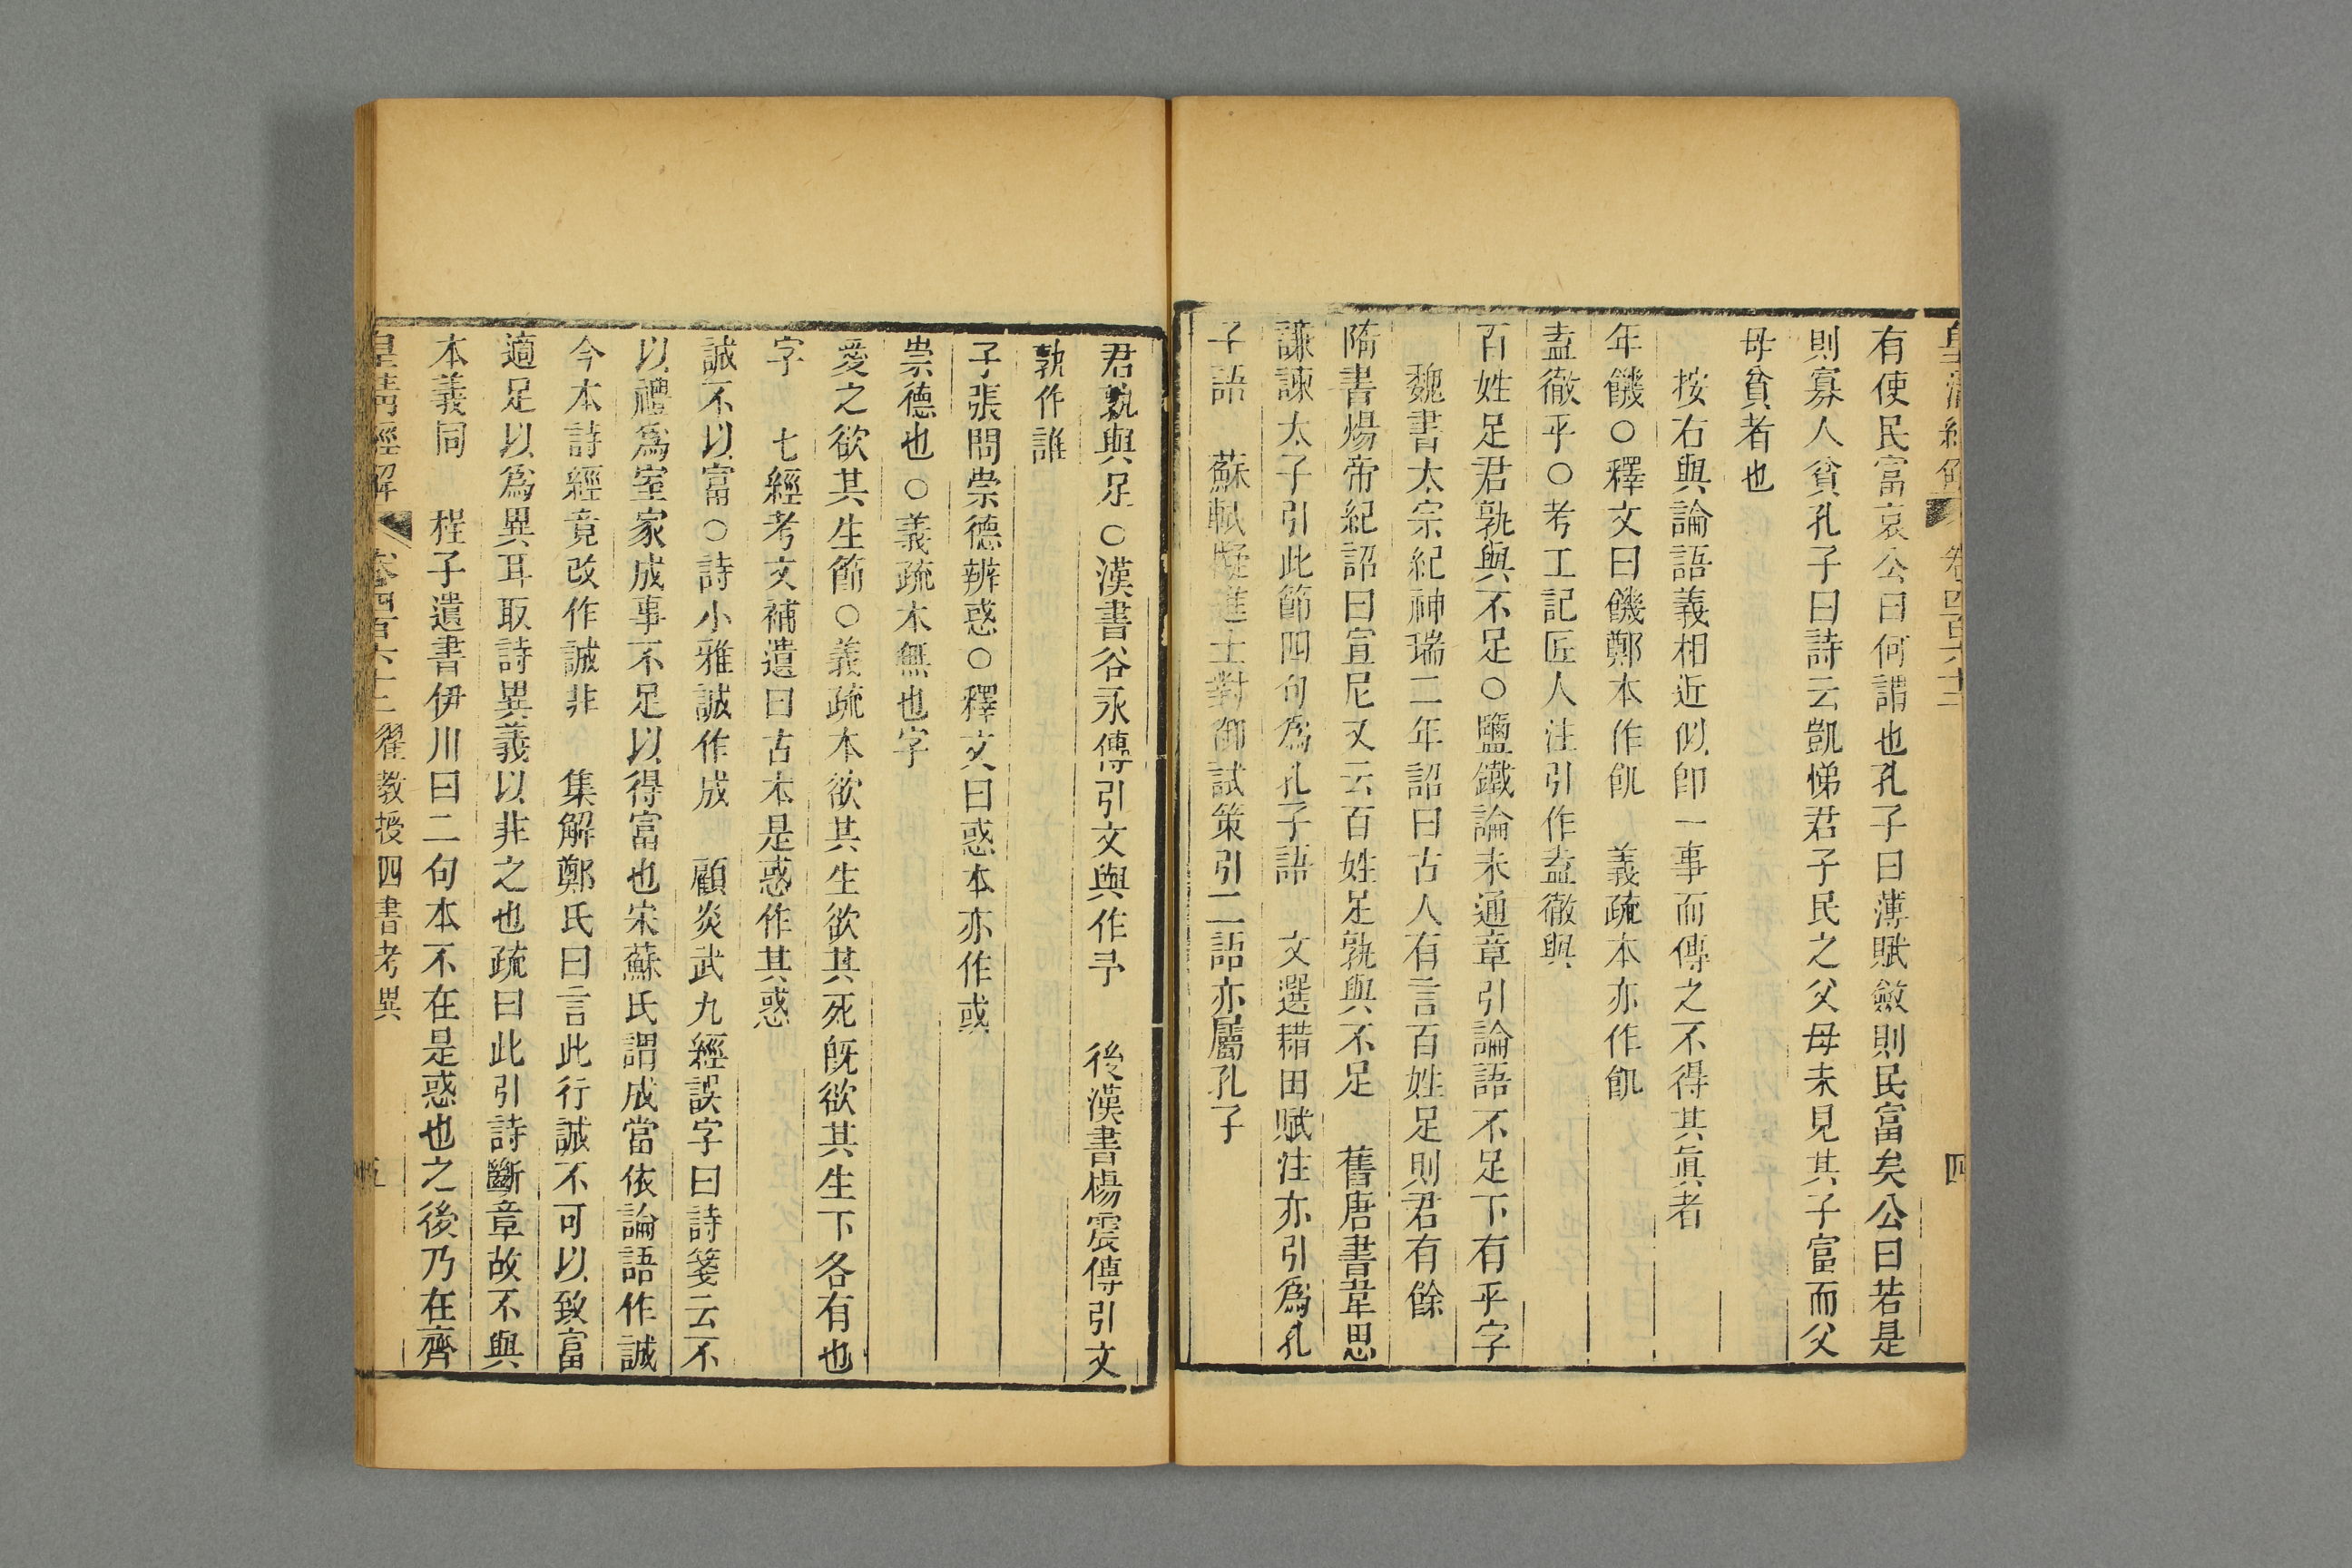 皇清經解 卷四百六十二 四
有使民富哀公曰何謂也孔子曰薄賦斂則民富矣公曰若是
則寡人貧孔子曰詩云凱悌君子民之父母未見其子富而父
母貧者也
按右與論語義相近似卽一事而傳之不得其眞者
年饑○釋文曰饑鄭本作飢 義疏本亦作飢
盍徹乎○考工記匠人注引作盍徹與
百姓足君孰與不足○鹽鐵論未通章引論語不足下有乎字
魏書太宗紀神瑞二年詔曰古人有言百姓足則君有餘
隋書煬帝紀詔曰宣尼又云百姓足孰與不足 舊唐書韋思
謙諫太子引此節四句爲孔子語 文選耤田賦注亦引爲孔
子語 蘇軾擬進士對御試策引二語亦屬孔子
君孰與足○漢書谷永傳引文與作予 後漢書楊震傳引文
孰作誰
子張問崇德辨惑○釋文曰惑本亦作或
崇德也○義疏本無也字
愛之欲其生節○義疏本欲其生欲其死旣欲其生下各有也
字 七經考文補遺曰古本是惑作其惑
誠不以富○詩小雅誠作成 顧炎武九經誤字曰詩箋云不
以禮爲室家成事不足以得富也宋蘇氏謂成當依論語作誠
今本詩經竟改作誠非 集解鄭氏曰言此行誠不可以致富
適足以爲異耳取詩異義以非之也疏曰此引詩斷章故不與
本義同 程子遺書伊川曰二句本不在是惑也之後乃在齊
皇清經解 卷四百六十二 翟教授四書考異 五